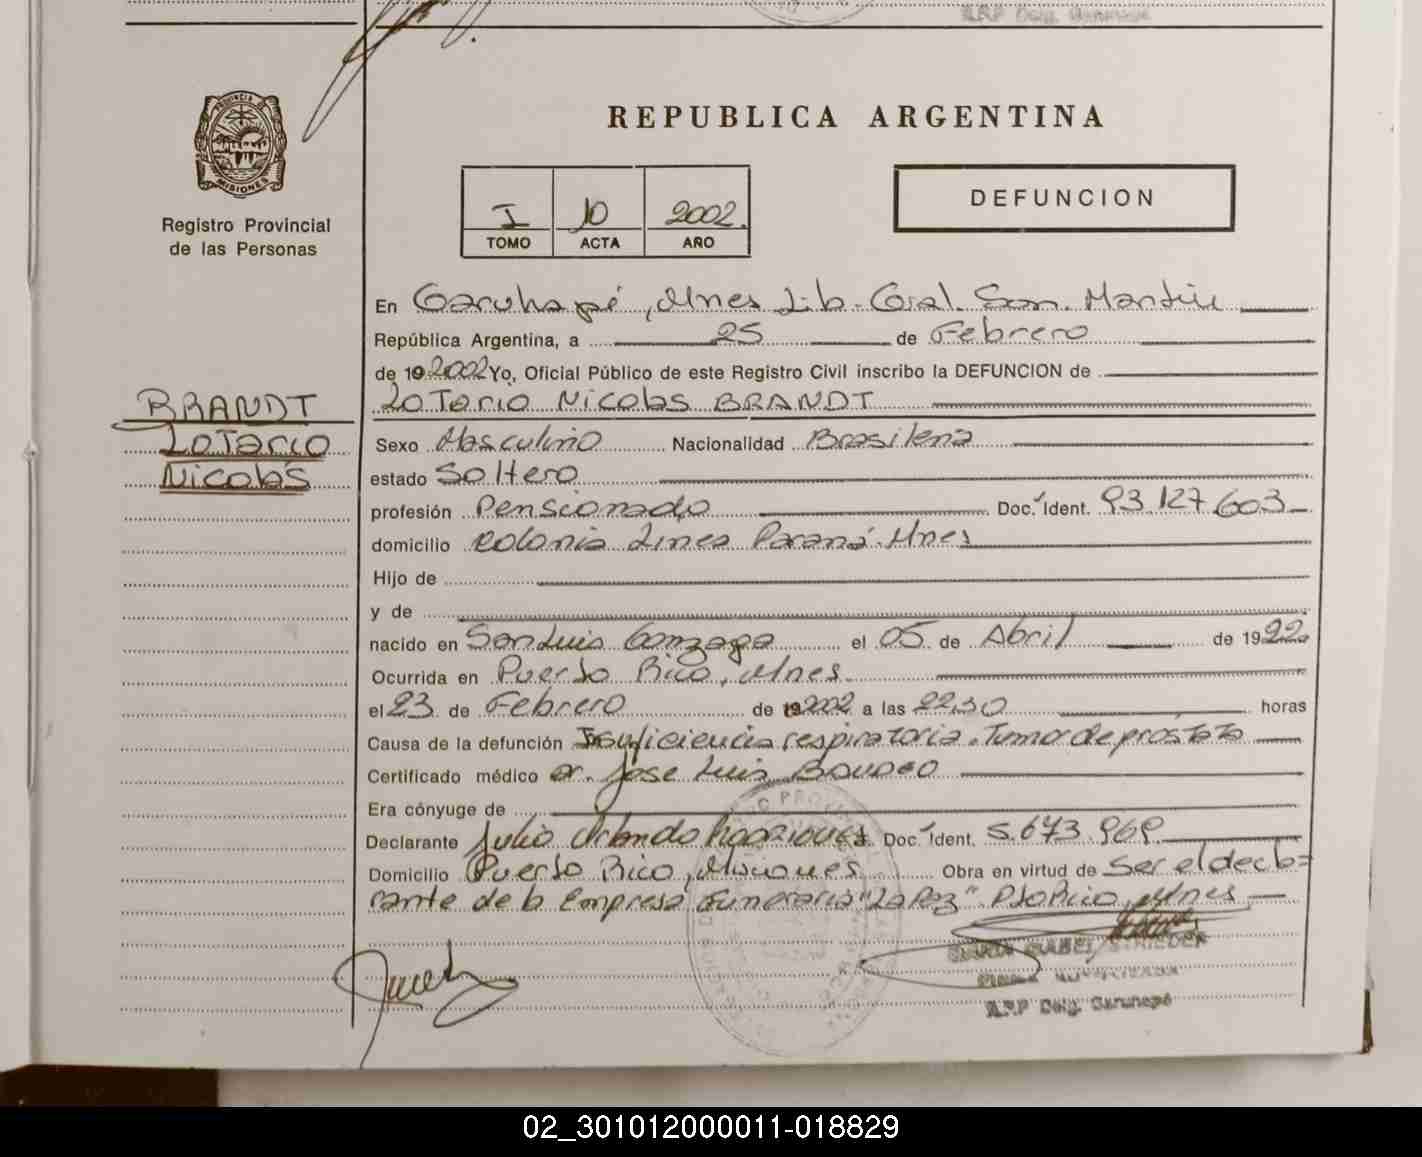 R.R.P Delg. Garuhapé
PROVINCIA DE
MISIONES
Registro Provincial
de las Personas
REPUBLICA ARGENTINA
I 10 2002.
TOMO ACTA AÑO
DEFUNCION
En Garuhapé, Mnes Lib. Gral. San. Martín
República Argentina, a 25 de Febrero
de 19 2002 Yo, Oficial Público de este Registro Civil inscribo la DEFUNCION de
BRANDT
Lotario
Nicolás
Lotario Nicolás BRANDT
Sexo Masculino Nacionalidad Brasilena
estado Soltero
profesión Pensionado Doc. Ident. 93.127.603
domicilio Colonia Linea Paraná. Mnes
Hijo de
y de
nacido en San Luis Gonzaga el 05 de Abril de 1922
Ocurrida en Puerto Rico, Mnes.
el 23 de Febrero de 2002 a las 22,30 horas
Causa de la defunción Insuficiencia respiratoria. Tumor de próstata
Certificado médico Dr. Jose Luis
Era cónyuge de
Declarante Julio Orlando Rodriguez Doc. Ident. 5.673.969
Domicilio Puerto Rico, Misiones Obra en virtud de Ser el decla=
rante de la Empresa Funeraria "La Paz" Pto Rico, Mnes
R.R.P Delg. Garuhapé
02_301012000011-018829